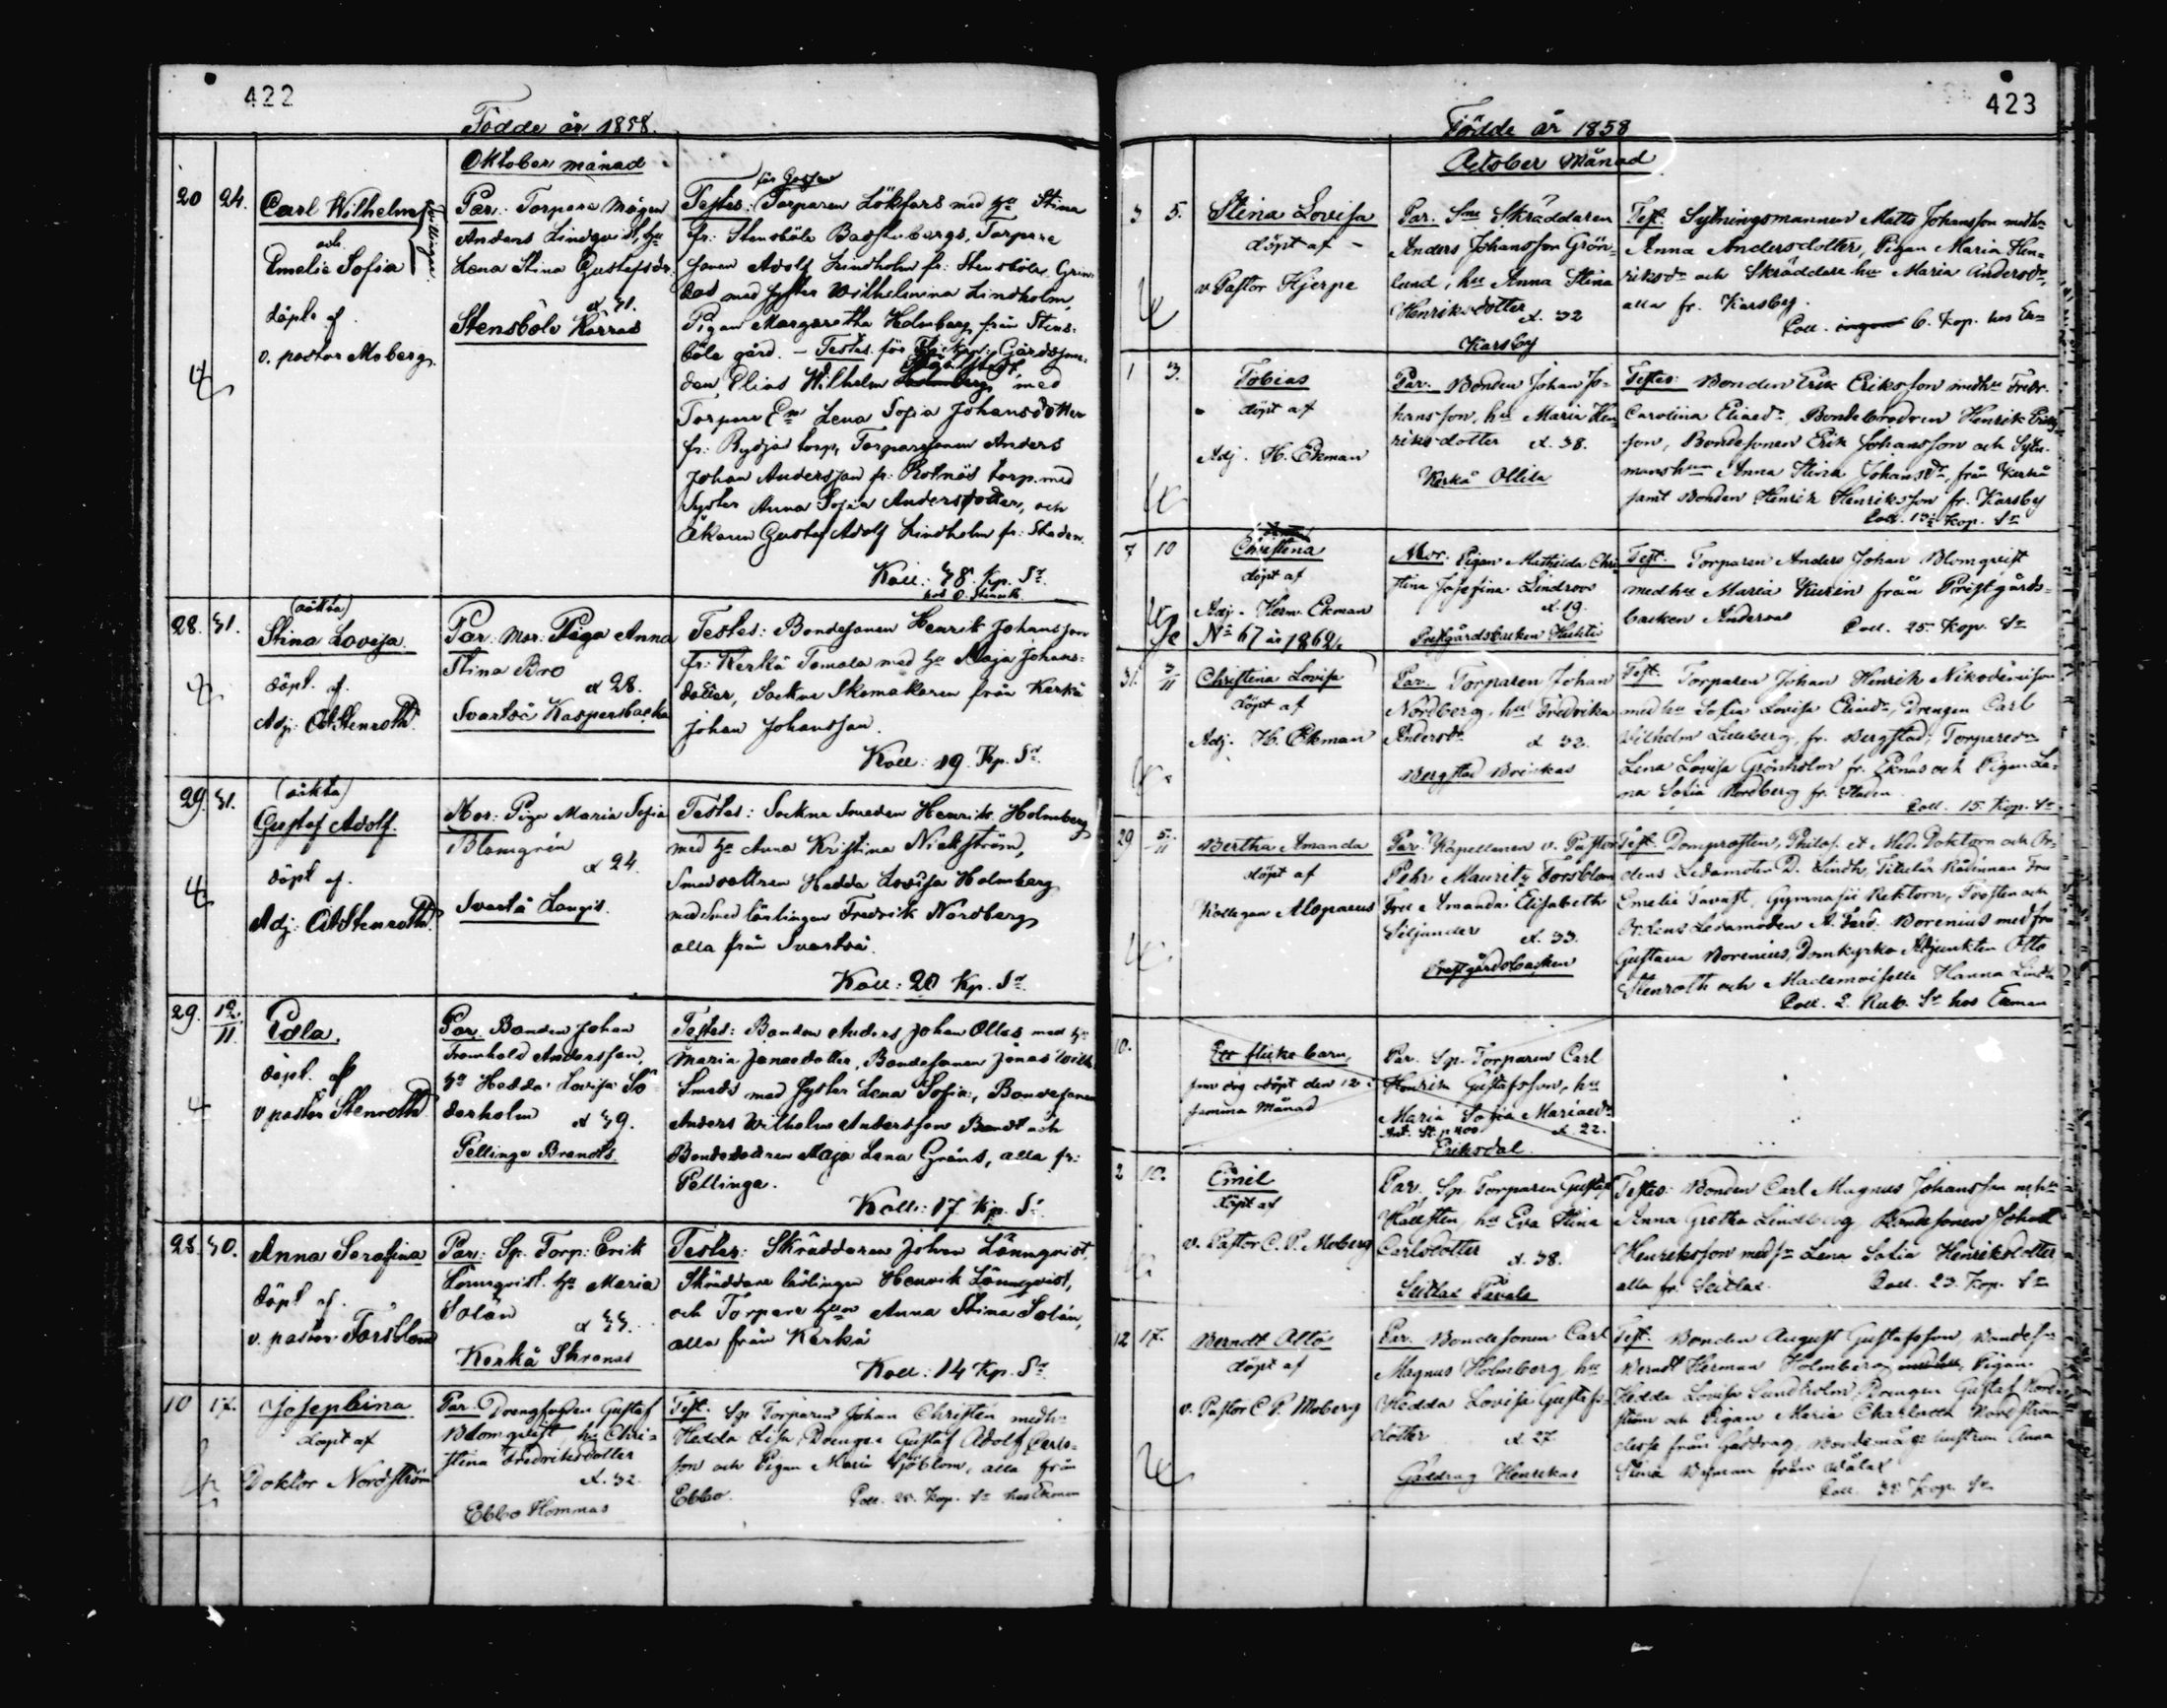 422
Födde år 1858.
Oktober månad
20 24. Carl Wilhelm
och
Emelie Sofia
tvillingar
döpte af
v. pastor Moberg.
Par: Torpare Mågen
Anders Lindqvist, hu
Lena Stina Gustafsdr
æt 31.
Stensböle Kärras
för Gossen
Testes: Torparen Lökfors med hu Stina
fr: Stensböle Bastubergs, Torpare
sonen Adolf Lindholm fr: Stensböle, Grin-
das med syster Wilhelmina Lindholm,
Pigan Margaretha Holmberg från Stens-
böle gård. — Testes för Flickan: Gårdssme-
den Elias Wilhelm med
Torpare Lena Sofia Johansdotter
fr: torp, Torparesonen Anders
Johan Andersson fr: Rotnäs torp. med
syster Anna Sofia Andersdotter, och
Åkaren Gustaf Adolf Lindholm fr: Staden.
Koll: 38. Kp. Sr.
hos O. Stenroth
28. 31. (oäkta)
Stina Lovisa.
döpt. af.
Adj: O. Stenroth.
Par: Mor: Piga Anna
Stina Bro
æt 28.
Svartså Kaspersbacka
Testes: Bondesonen Henrik Johansson
fr: Kerkå Tomola med hu Maja Johans-
dotter, Sockne Skomakaren från Kerkå
Johan Johansson.
Koll: 19. Kp. Sr.
29. 31. (oäkta)
Gustaf Adolf.
döpt af.
Adj: O. Stenroth.
Mor: Piga Maria Sofia
Blomgrén
æt 24.
Svartså Långis.
Testes: Sockne Smeden Henrik Holmberg
med hu Anna Kristina Nickström,
Smedsdottren Hedda Lovisa Holmberg
med Smedlärlingen Fredrik Nordberg
alla från Svartså.
Koll: 20 Kp. Sr.
29. 12/11. Edla.
döpt. af
v pastor Stenroth.
Par. Bonden Johan
Fromhold Andersson,
hu Hedda Lovisa Sö-
derholm æt 39.
Pellinge Brandts.
Testes: Bonden Anders Johan Ollas med hu
Maria Jonasdotter, Bondesonen Jonas Wilh.
Smeds med syster Lena Sofia, Bondesonen
Anders Wilhelm Andersson Brandt och
Bondedottren Maja Lena Gråns, alla fr:
Pellinge.
Koll: 17 Kp. Sr.
28. 30. Anna Serafina
döpt af.
v. pastor Forsblom
Par: Sp. Torp: Erik
Lönnqvist. hu Maria
Solén æt 33.
Kerkå Skranas
Testes: Skräddaren Johan Lönnqvist,
Skräddare lärlingen Henrik Lönnqvist,
och Torpare hun Anna Stina Solén,
alla från Kerkå
Koll: 14 Kp. Sr.
10 17. Josephina
döpt af
Doktor Nordström
Par. Drengfogden Gustaf
Blomqvist, hu Chri-
stina Fredriksdotter
æt. 32.
Ebbo Hommas
Test. Sp. Torparen Johan Christén medhu
Hedda Lisa, Drengen Gustaf Adolf Carls-
son och Pigan Maria Sjöblom, alla från
Ebbo. Coll. 25. Kop. Sr hos Ekman
423
Födde år 1858
October Månad
3 5. Stina Lovisa
döpt af –
v. Pastor Hjerpe
Par. Sne Skräddaren
Anders Johansson Grön-
lund, hu Anna Stina
Henriksdotter æt. 32
Karsby
Test: Sytningsmannen Matts Johansson medhu
Anna Andersdotter, Pigan Maria Hen-
riksdr och Skräddare hu Maria Andersdr,
alla fr. Karsby.
Coll. ingen 6. Kop. hos
1 3. Tobias
döpt af
Adj. H. Ekman
Par. Bonden Johan Jo-
hansson, hu Maria Hen-
riksdotter æt. 38.
Kerkå Ollila
Testes: Bonden Erik Eriksson medhu Fredr.
Carolina Eliædr, Bondebrodren Henrik Eriks-
son, Bondesonen Erik Johansson och Sytn.
manshun Anna Stina Johansdr, från Kerkå
samt Bonden Henrik Henriksson fr. Karsby
Coll. 13 Kop. Sr
7 10 Christina
döpt af
Adj. Herm. Ekman
No 67 år 1862.
Mor. Pigan Mathilda Chri-
stina Josefina Lindroos
æt. 19.
Prestgårdsbacken
Test. Torparen Anders Johan Blomqvist
medhu Maria Kurin från Prestgårds-
backen Coll. 25. Kop. Sr
31. 3/11 Christina Lovisa
döpt af
Adj. H. Ekman
Par. Torparen Johan
Nordberg, hu Fredrika
Andersdr æt 32.
Bergstad Brinkas
Test. Torparen Johan Henrik Nikodemisson
medhu Sofia Lovisa Eliædr, Drengen Carl
Wilhelm Lilleberg, fr. Bergstad, Torparedr
Lena Lovisa Grönholm fr. Eknäs och Pigan Le-
na Sofia Nordberg fr. Staden
Coll. 15 Kop. Sr
29 5/11 Bertha Amanda
döpt af
Kollegan Alopaeus
Par. Kapellanen v. Pastor
Pehr Mauritz Forsblom
Fru Amanda Elisabeth
Siljander æt. 33.
Prestgårdsbacken
Test. Domprosten, Philos. et Med. Doktorn och Or-
dens Ledamoten D. Lindh, Titulär Rådinnan Fru
Emelie Tavast, Gymnasii Rektorn, Prosten och
Ordens Ledamoten A. Ferd. Borenius med fru
Gustava Borenius, Domkyrko Adjunkten Otto
Stenroth och Mademoiselle Hanna Lindh
Coll. 2. Rub. Sr hos Ekman
10. Ett flicke barn,
som dog odöpt den 12
samma Månad
Par. Sp. Torparen Carl
Henrik Gustafsson, hu
Maria Sofia Mariaedr
æt. 22.
Eriksdal
2 10. Emil
döpt af
v. Pastor C. P. Moberg
Par. Sp. Torparen Gustaf
Hällsten, hu Eva Stina
Carlsdotter æt. 38.
Seitlax Pavals
Testes: Bonden Carl Magnus Johansson m. hu
Anna Gretha Lindberg, Bondesonen Johan
Henriksson med sr Lena Sofia Henriksdotter
alla fr. Seitlax. Coll. 23. Kop. Sr
12 17. Berndt Otto
döpt af
v. Pastor C P. Moberg
Par. Bondesonen Carl
Magnus Holmberg, hu
Hedda Lovisa Gustafs-
dotter æt. 27
Gäddrag Henrikas
Test. Bonden August Gustafsson, Bondes-
Berndt Herman Holmberg Pigan
Hedda Lovisa Sundholm, Drengen Gustaf Nord-
ström och Pigan Maria Charlotta Nordström
desse från Gäddrag, Bondemåge hustrun Anna
Stina från Wålax
Coll. Kop. Sr